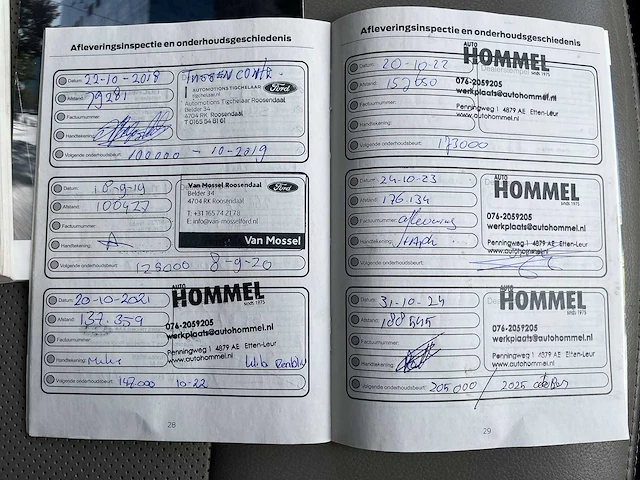 Afleveringsinspectie en onderhoudsgeschiedenis
Datum: 22-10-2018
Afstand: 79281
Factuurnummer:
Handtekening:
AUTOMOTIONS TIGCHELAAR
tigchelaar.nl
Ford
Automotions Tigchelaar Roosendaal
Belder 34
4704 RK Roosendaal
T 0165 54 81 61
Volgende onderhoudsbeurt: 100000 - 10-2019
Datum: 10-9-19
Afstand: 100427
Factuurnummer:
Handtekening:
Van Mossel Roosendaal
Ford
Belder 34
4704 RK Roosendaal
T: +31 165 74 21 78
E: info@van-mosselford.nl
Van Mossel
Volgende onderhoudsbeurt: 125000 8-9-20
Datum: 20-10-2021
Afstand: 137.359
Factuurnummer:
Handtekening:
AUTO
HOMMEL
sinds 1975
076-2059205
werkplaats@autohommel.nl
Penningweg 1 4879 AE Etten-Leur
www.autohommel.nl
Volgende onderhoudsbeurt: 147.000 10-22
28
Afleveringsinspectie en onderhoudsgeschiedenis
Datum: 20-10-22
Afstand: 152650
Factuurnummer:
Handtekening:
AUTO
HOMMEL
sinds 1975
076-2059205
werkplaats@autohommel.nl
Penningweg 1 4879 AE Etten-Leur
www.autohommel.nl
Volgende onderhoudsbeurt: 173000
Datum: 24-10-23
Afstand: 176.134
Factuurnummer: aflevering
Handtekening:
AUTO
HOMMEL
sinds 1975
076-2059205
werkplaats@autohommel.nl
Penningweg 1 4879 AE Etten-Leur
www.autohommel.nl
Volgende onderhoudsbeurt:
Datum: 31-10-24
Afstand: 188545
Factuurnummer:
Handtekening:
AUTO
HOMMEL
sinds 1975
076-2059205
werkplaats@autohommel.nl
Penningweg 1 4879 AE Etten-Leur
www.autohommel.nl
Volgende onderhoudsbeurt: 205000 / 2025 oktober
29